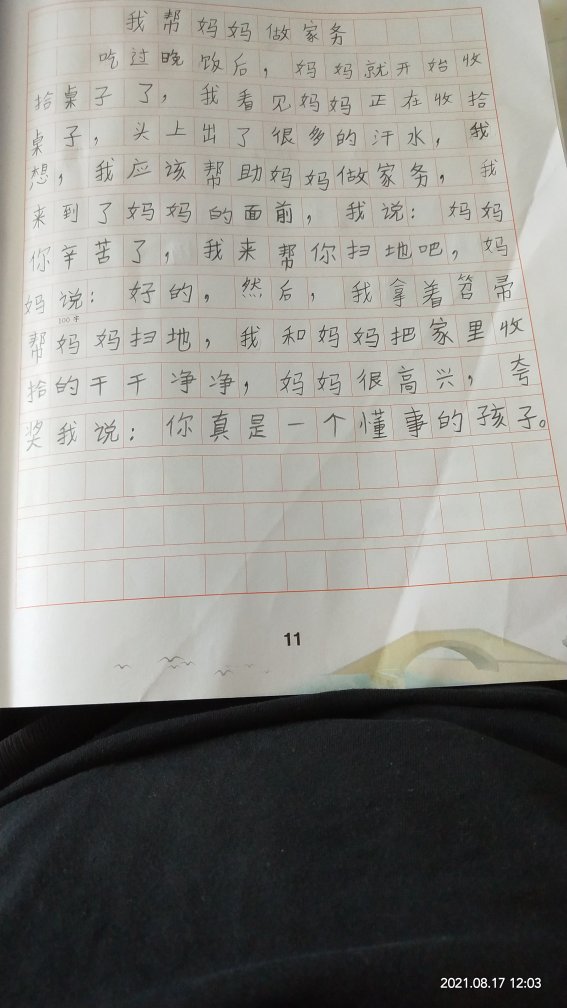 我帮妈妈做家务
吃过晚饭后，妈妈就开始收
拾桌子了，我看见妈妈正在收拾
桌子，头上出了很多的汗水，我
想，我应该帮助妈妈做家务，我
来到了妈妈的面前，我说：妈妈
你辛苦了，我来帮你扫地吧，妈
妈说：好的，然后，我拿着笤帚
100字
帮妈妈扫地，我和妈妈把家里收
拾的干干净净，妈妈很高兴，夸
奖我说：你真是一个懂事的孩子。
11
2021.08.17 12:03